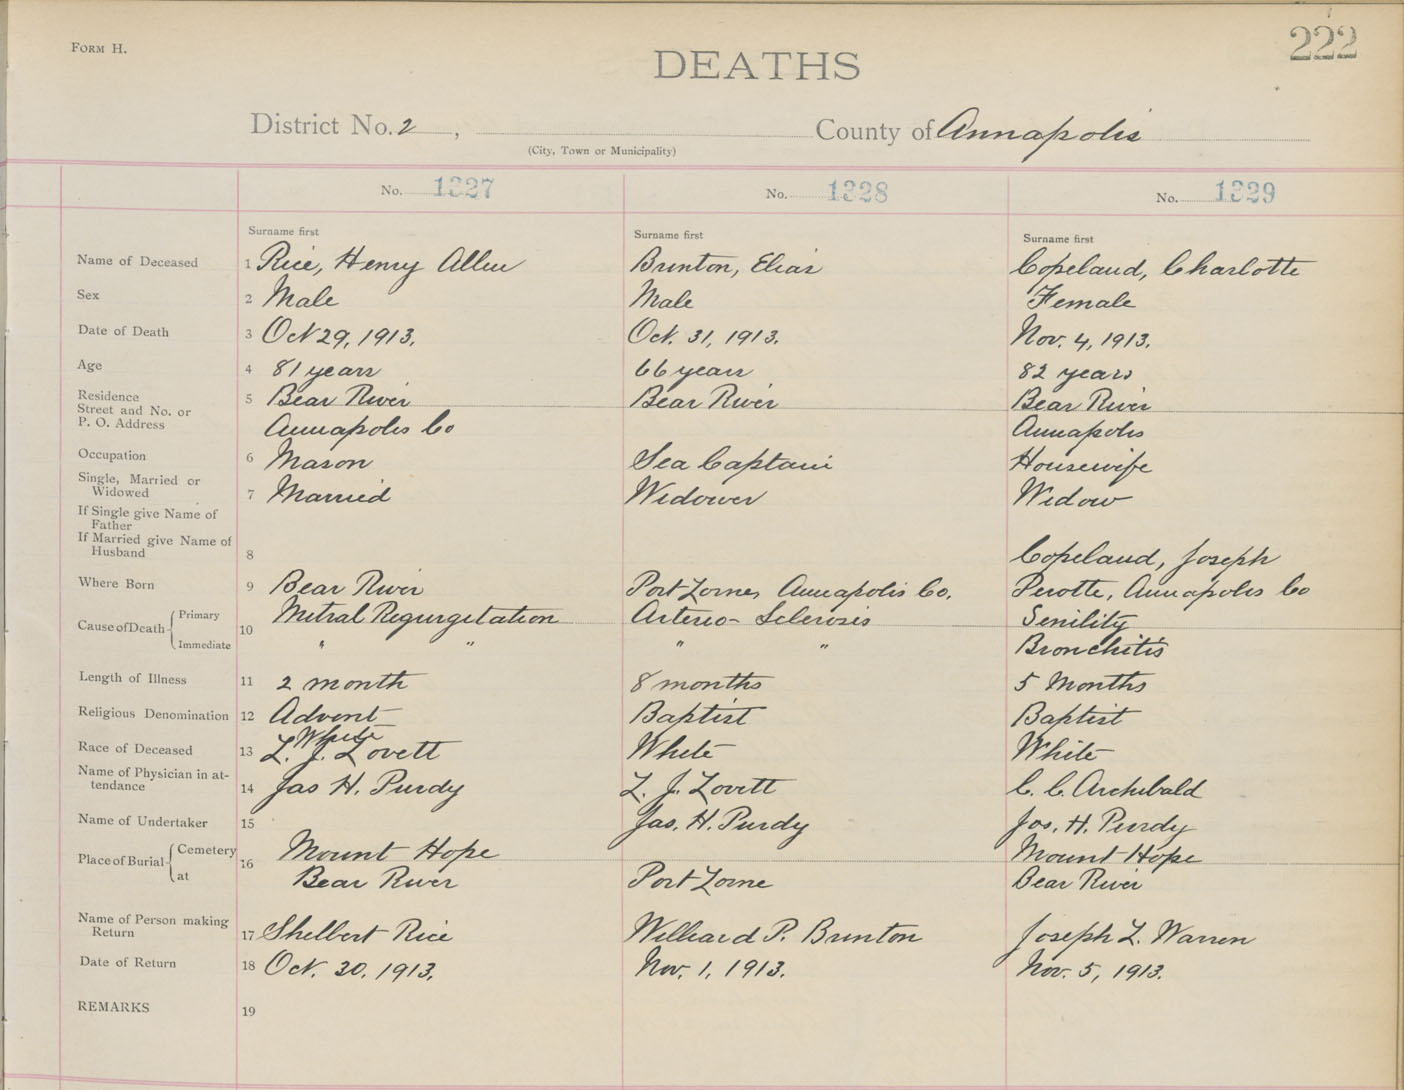 FORM H.
222
DEATHS
District No. 2, County of Annapolis
(City, Town or Municipality)
No. 1327 No. 1328 No. 1329
Surname first Surname first Surname first
Name of Deceased 1 Rice, Henry Allen Brinton, Elias Copeland, Charlotte
Sex 2 Male Male Female
Date of Death 3 Oct 29, 1913. Oct. 31, 1913. Nov. 4, 1913.
Age 4 81 years 66 years 82 years
Residence
Street and No. or 5 Bear River Bear River Bear River
P. O. Address Annapolis Co Annapolis
Occupation 6 Mason Sea Captain Housewife
Single, Married or
Widowed 7 Married Widower Widow
If Single give Name of
Father
If Married give Name of
Husband 8 Copeland, Joseph
Where Born 9 Bear River Port Lorne, Annapolis Co. Perotte, Annapolis Co
Cause of Death Primary 10 Mitral Regurgetation Arterio- Sclerosis Senility
Immediate " " " " Bronchitis
Length of Illness 11 2 month 8 months 5 Months
Religious Denomination 12 Advent Baptist Baptist
White
Race of Deceased 13 L. J. Lovett White White
Name of Physician in at-
tendance 14 Jas H. Purdy L. J. Lovett C. C. Archibald
Name of Undertaker 15 Jas. H. Purdy Jos. H. Purdy
Place of Burial Cemetery 16 Mount Hope Mount Hope
at Bear River Port Lorne Bear River
Name of Person making
Return 17 Shelbert Rice Williard P. Brinton Joseph L. Warren
Date of Return 18 Oct. 30, 1913. Nov. 1, 1913. Nov. 5, 1913.
REMARKS 19